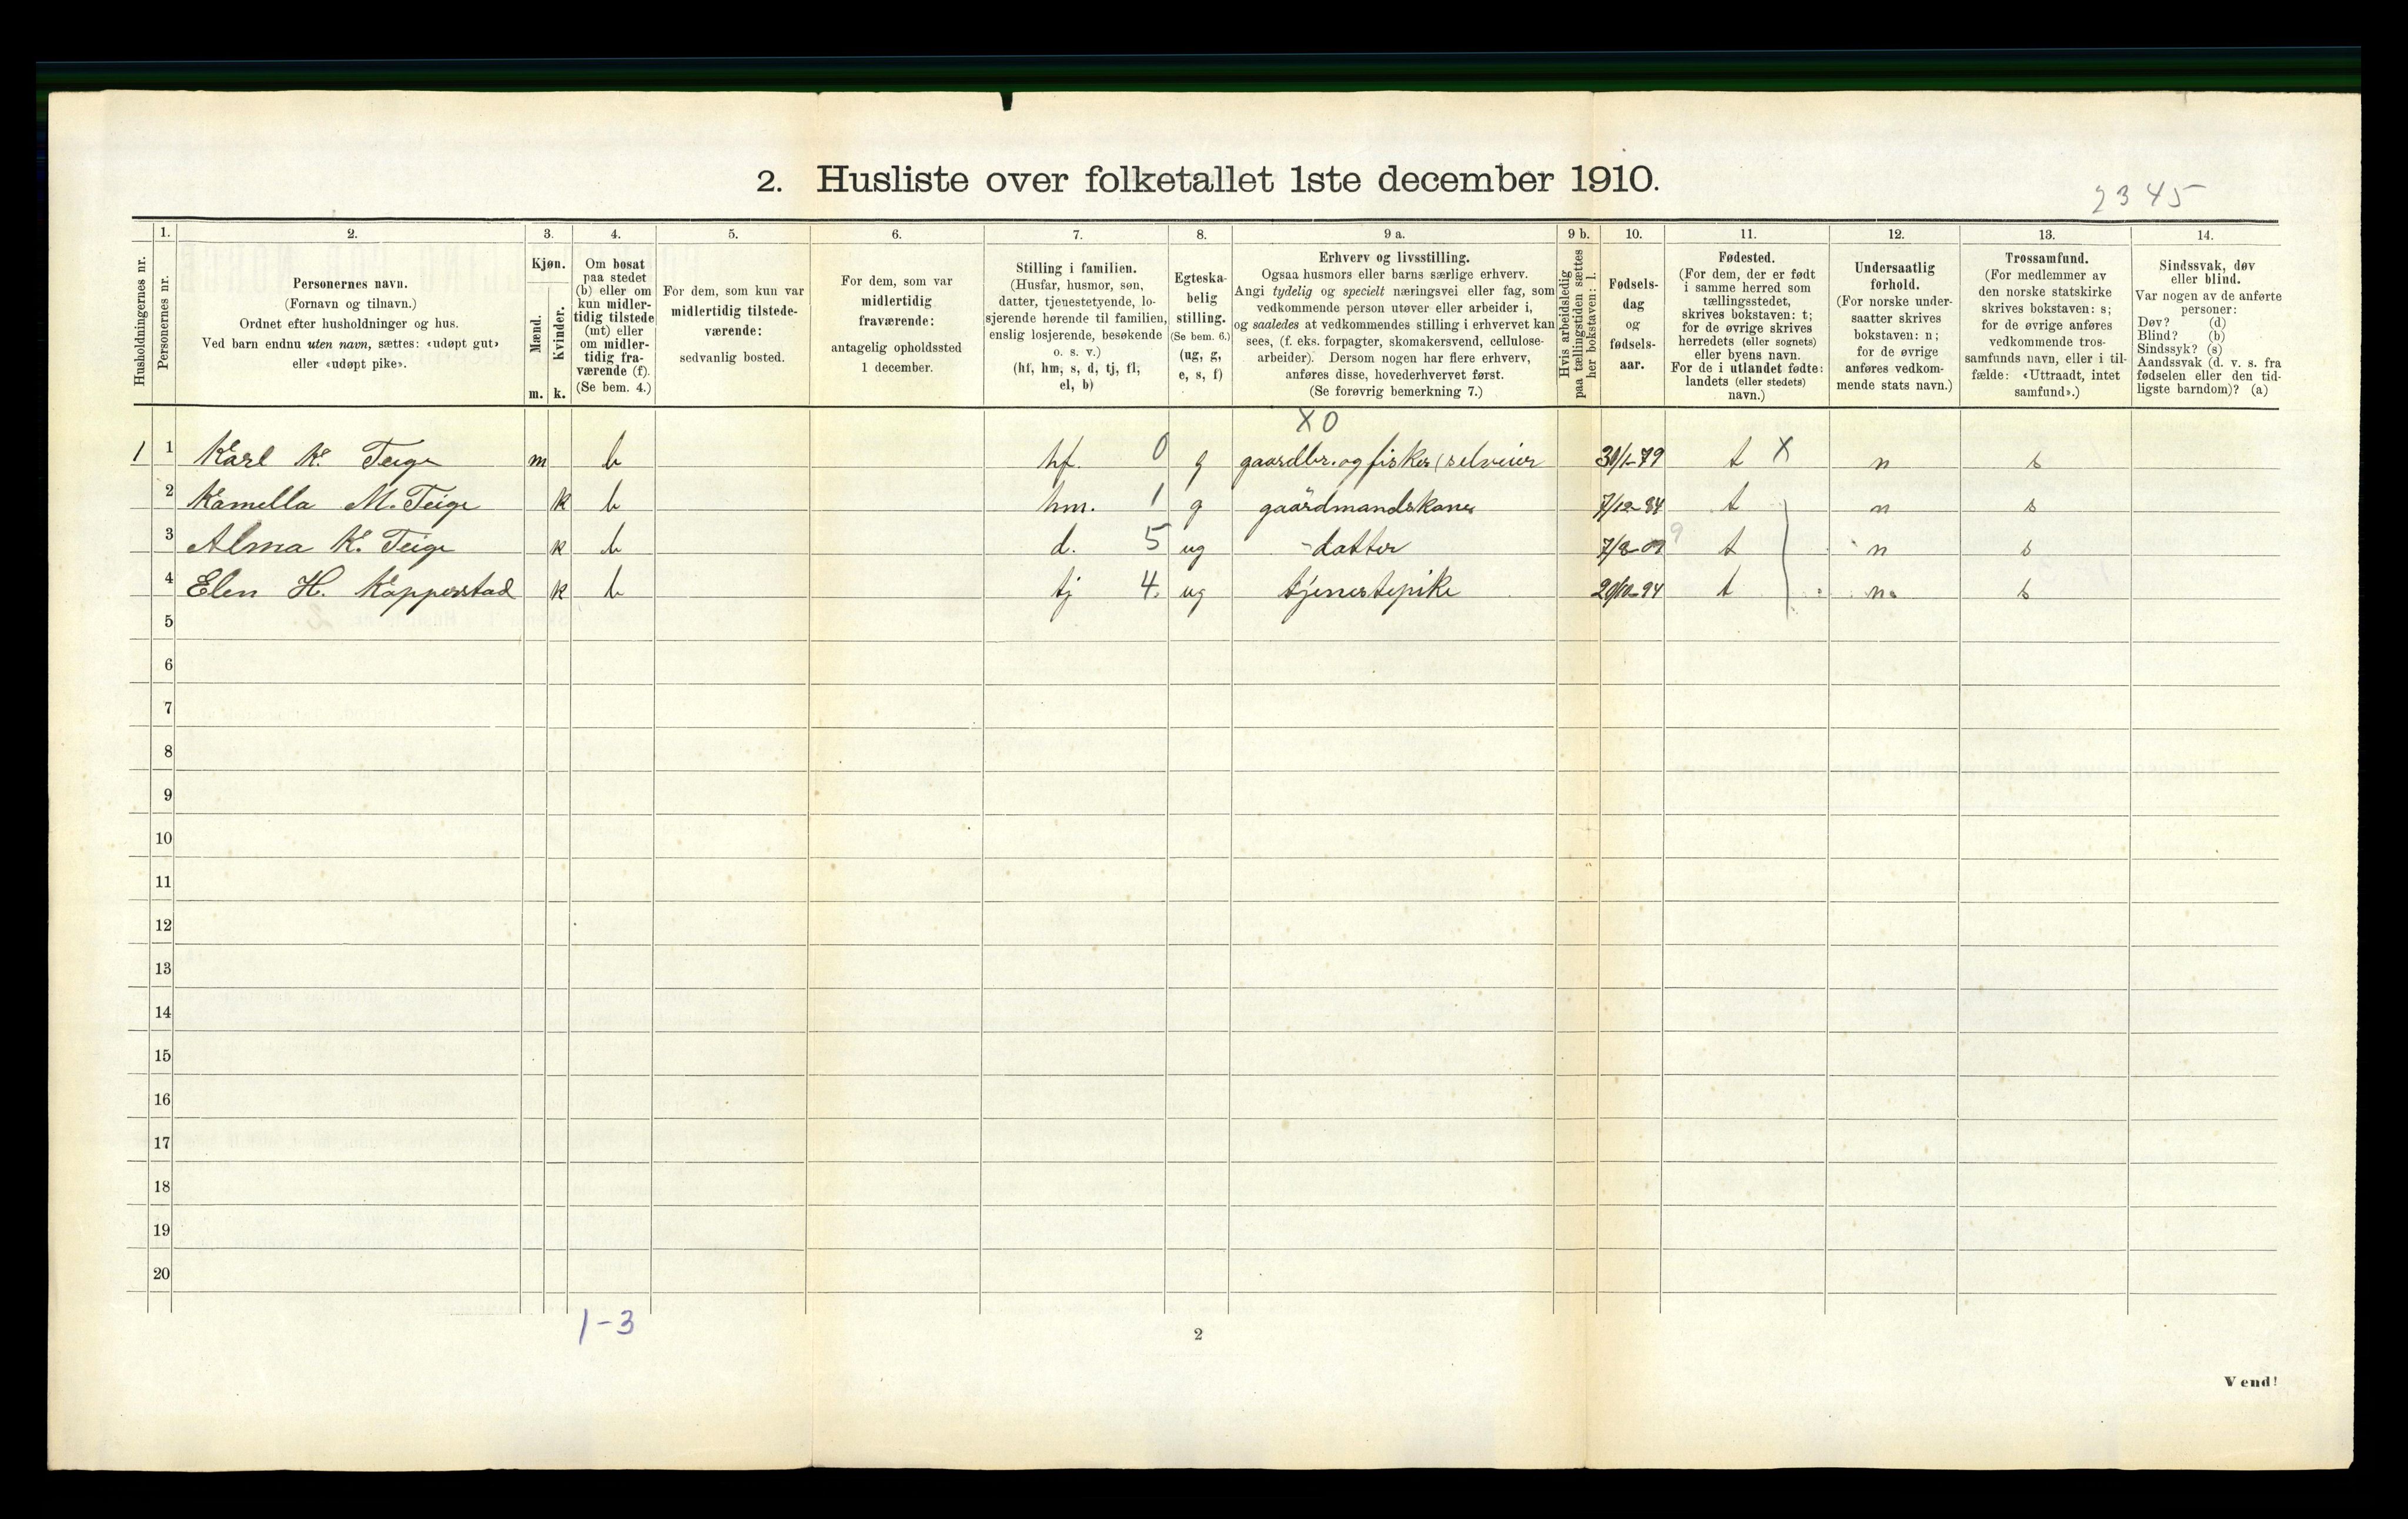 2. Husliste over folketallet 1ste december 1910.
2345
1. 2. 3. 4. 5. 6. 7. 8. 9 a. 9 b. 10. 11. 12. 13. 14.
Husholdningernes nr.
Personernes nr.
Personernes navn.
(Fornavn og tilnavn.)
Ordnet efter husholdninger og hus.
Ved barn endnu uten navn, sættes: «udøpt gut»
eller «udøpt pike».
Kjøn.
Mænd.
Kvinder.
m. k.
Om bosat
paa stedet
(b) eller om
kun midler-
tidig tilstede
(mt) eller
om midler-
tidig fra-
værende (f).
(Se bem. 4.)
For dem, som kun var
midlertidig tilstede-
værende:
sedvanlig bosted.
For dem, som var
midlertidig
fraværende:
antagelig opholdssted
1 december.
Stilling i familien.
(Husfar, husmor, søn,
datter, tjenestetyende, lo-
sjerende hørende til familien,
enslig losjerende, besøkende
o. s. v.)
(hf, hm, s, d, tj, fl,
el, b)
Egteska-
belig
stilling.
(Se bem. 6.)
(ug, g,
e, s, f)
Erhverv og livsstilling.
Ogsaa husmors eller barns særlige erhverv.
Angi tydelig og specielt næringsvei eller fag, som
vedkommende person utøver eller arbeider i,
og saaledes at vedkommendes stilling i erhvervet kan
sees, (f. eks. forpagter, skomakersvend, cellulose-
arbeider). Dersom nogen har flere erhverv,
anføres disse, hovederhvervet først.
(Se forøvrig bemerkning 7.)
Hvis arbeidsledig
paa tællingstiden sættes
her bokstaven: l.
Fødsels-
dag
og
fødsels-
aar.
Fødested.
(For dem, der er født
i samme herred som
tællingsstedet,
skrives bokstaven: t;
for de øvrige skrives
herredets (eller sognets)
eller byens navn.
For de i utlandet fødte:
landets (eller stedets)
navn.)
Undersaatlig
forhold.
(For norske under-
saatter skrives
bokstaven: n;
for de øvrige
anføres vedkom-
mende stats navn.)
Trossamfund.
(For medlemmer av
den norske statskirke
skrives bokstaven: s;
for de øvrige anføres
vedkommende tros-
samfunds navn, eller i til-
fælde: «Uttraadt, intet
samfund».)
Sindssvak, døv
eller blind.
Var nogen av de anførte
personer:
Døv? (d)
Blind? (b)
Sindssyk? (s)
Aandssvak (d. v. s. fra
fødselen eller den tid-
ligste barndom)? (a)
X0
1 1 Karl K. Teige m b hf. 0 g gaardbr. og fisker (selveier 31/1-79 t X n s
2 Kamella M. Teige k b hm. 1 g gaardmandskone 7/12-84 t n s
3 Alma K. Teige k b d. 5 ug - datter 7/8-09 9 t n s
4 Elen H. Kopperstad k b tj 4. ug tjenestepike 20/10-94 t n. s
5
6
7
8
9
10
11
12
13
14
15
16
17
18
19
20
1-3
2
Vend!